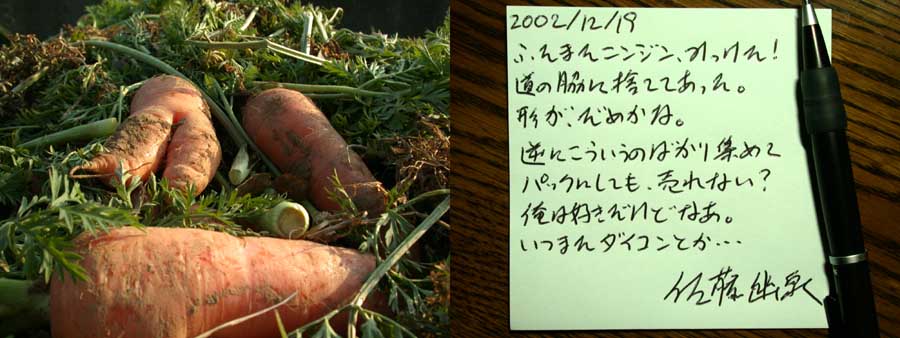 2002/12/19
ふんまんニンジン、みっけん!
道の脇に捨ててあった。
形が、だめかな。
逆にこういうのばかり集めて
パックにしても、売れない?
俺は好きだけどなあ。
いつまんダイコンとか…
佐藤